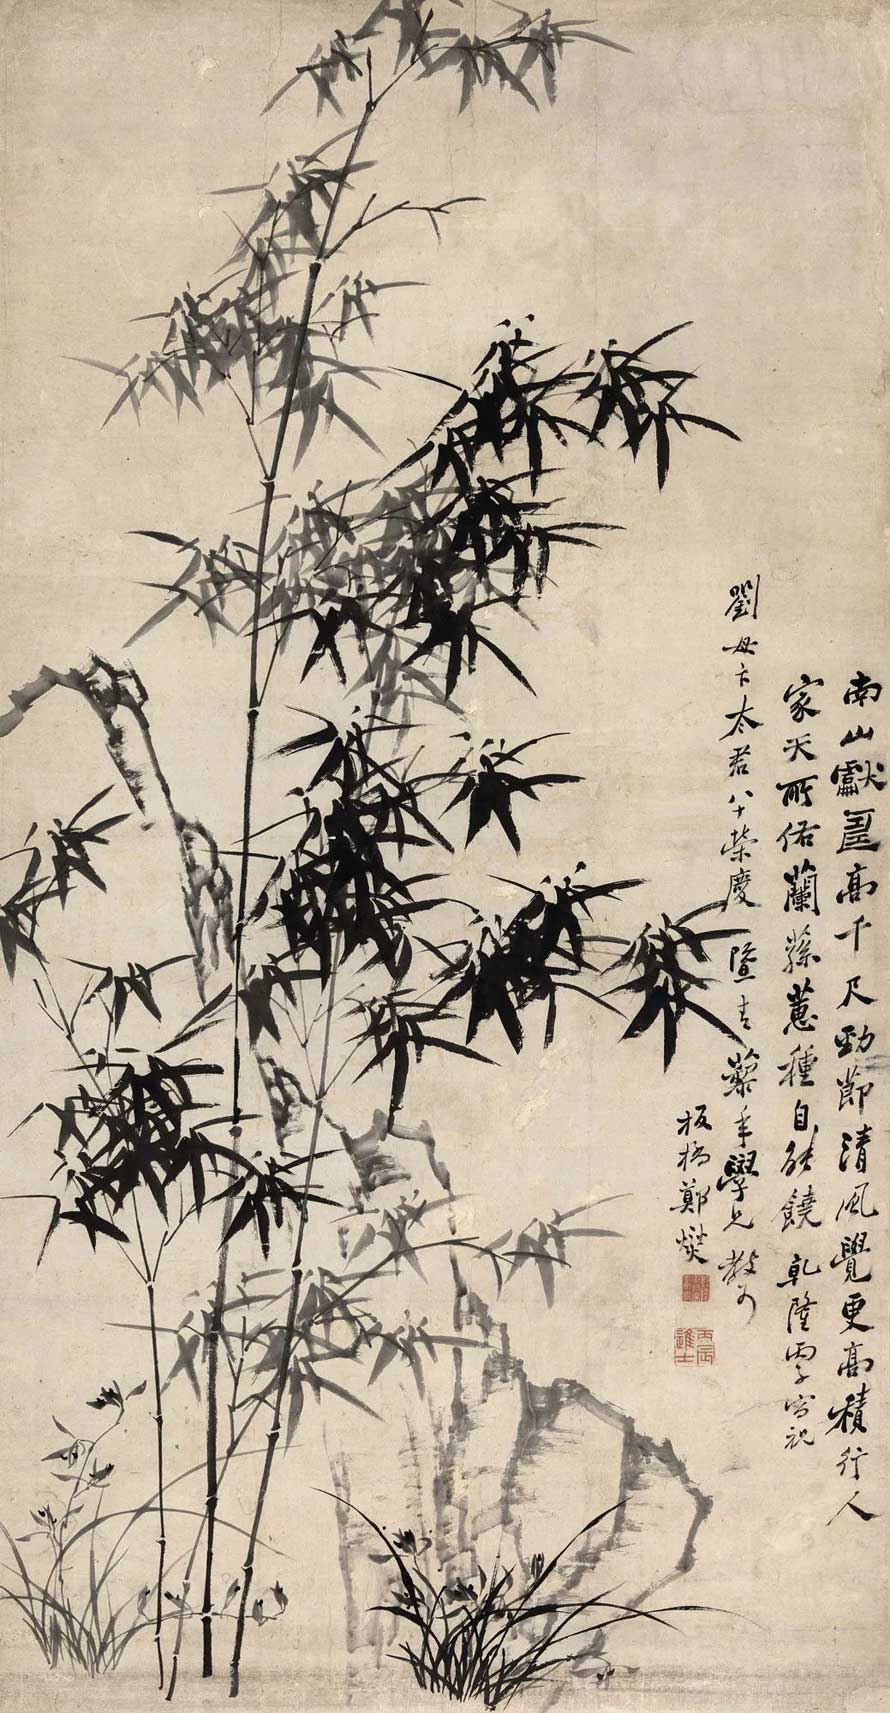 南山獻壽高千尺勁節清風覺更高積行人
家天所佑蘭蓀蕙種自能饒乾隆丙子寫祝
劉母卞太君八十榮慶暨青藜年學兄教可
板橋鄭燮
丙辰進士